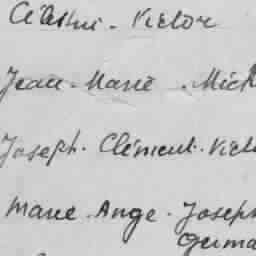 Victor
Jean. Marie. Mich
Joseph. Clément. Vict
Marie. Ange. Joseph
Germa